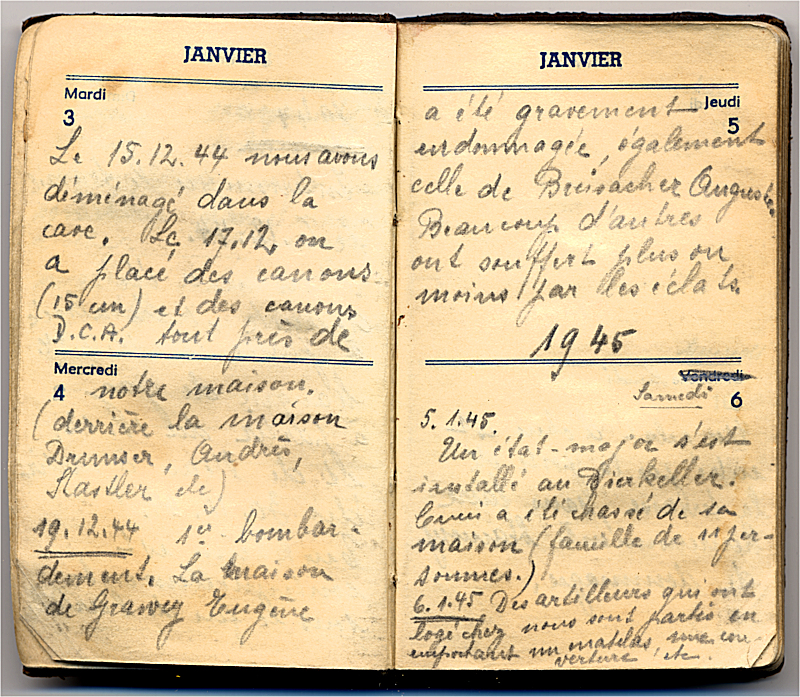 JANVIER
Mardi
3
Le 15.12.44 nous avons
déménagé dans la
cave. Le 17.12. on
a placé des canons
(15 cm) et des canons
D.C.A. tout près de
Mercredi
4
notre maison.
(derrière la maison
Drumser, Andrès,
Kastler etc)
19.12.44 1er bombar-
dement. La maison
de Eugène
JANVIER
Jeudi
5
a été gravement
endommagée, également
celle de Breisacher Auguste.
Beaucoup d'autres
ont souffert plus ou
moins par les éclats.
1945
Vendredi
Samedi
6
5.1.45.
Un état-major s'est
installé au Bierkeller.
a été chassé de sa
maison (famille de 11 per-
sonnes.)
6.1.45 Des artilleurs qui ont
logé chez nous sont partis en
emportant un matelas, une cou-
verture, etc.